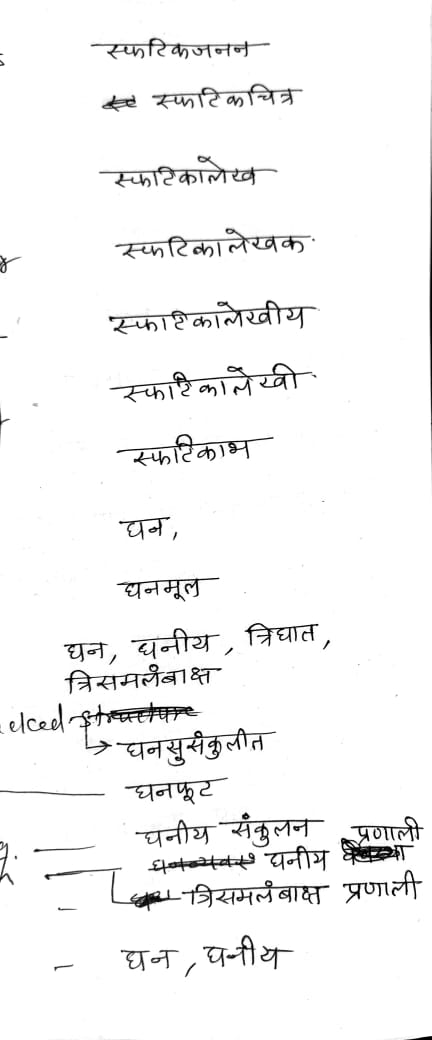 स्फटिकजनन
स्फटिकचित्र
स्फटिकालेख
स्फटिकालेखक
स्फटिकालेखीय
स्फटिकालेखी
स्फटिकाभ
घन,
घनमूल
घन, घनीय, त्रिघात,
त्रिसमलंबाक्ष
घनसुसंकुलीत
घनफूट
घनीय संकुलन
घनीय प्रणाली
त्रिसमलंबाक्ष प्रणाली
घन, घनीय